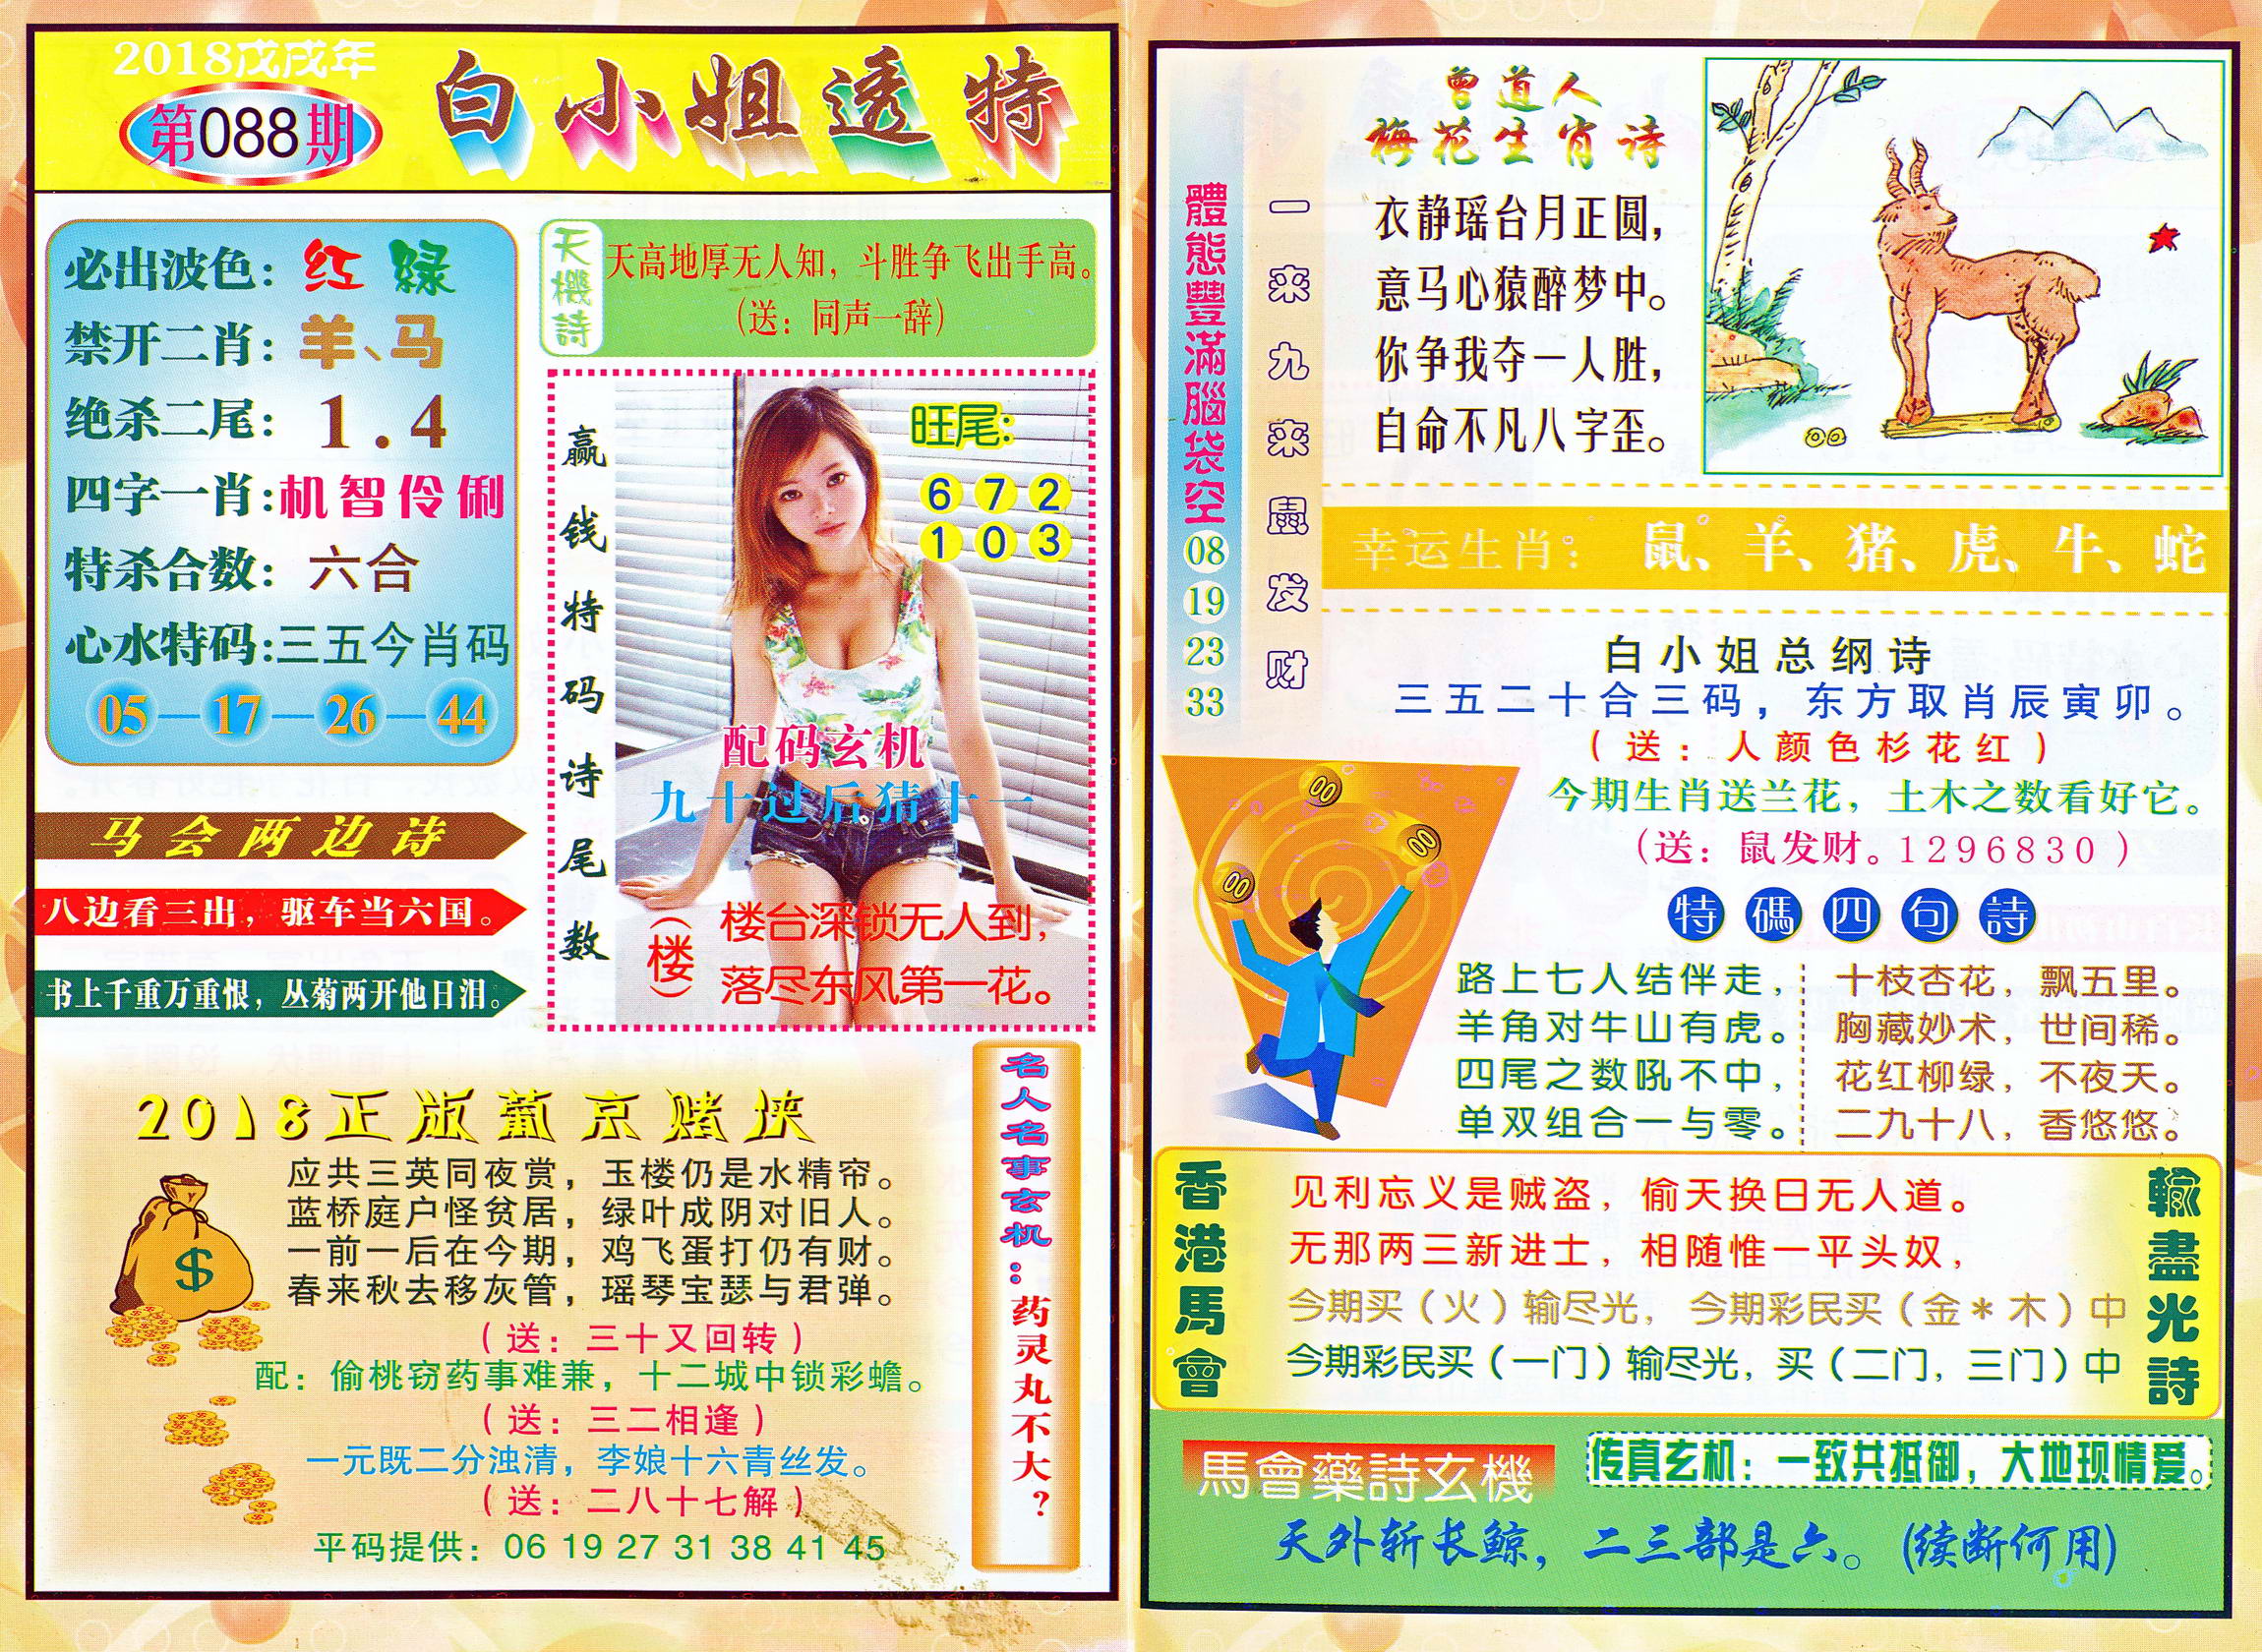 2018戊戌年
第088期
白小姐透特
必出波色：红 绿
禁开二肖：羊、马
绝杀二尾：1.4
四字一肖:机智伶俐
特杀合数：六合
心水特码:三五今肖码
05—17—26—44
天機詩
天高地厚无人知，斗胜争飞出手高。
（送：同声一辞）
赢钱特码诗尾数
旺尾:
6 7 2
1 0 3
配码玄机
九十过后猜十一
（楼）
楼台深锁无人到，
落尽东风第一花。
马会两边诗
八边看三出，驱车当六国。
书上千重万重恨，丛菊两开他日泪。
2018正版葡京赌侠
应共三英同夜赏，玉楼仍是水精帘。
蓝桥庭户怪贫居，绿叶成阴对旧人。
一前一后在今期，鸡飞蛋打仍有财。
春来秋去移灰管，瑶琴宝瑟与君弹。
（送：三十又回转）
配：偷桃窃药事难兼，十二城中锁彩蟾。
（送：三二相逢）
一元既二分浊清，李娘十六青丝发。
（送：二八十七解）
平码提供：06 19 27 31 38 41 45
名人名事玄机：药灵丸不大？
體態豐滿腦袋空
08
19
23
33
一来九来鼠发财
曾道人
梅花生肖诗
衣静瑶台月正圆，
意马心猿醉梦中。
你争我夺一人胜，
自命不凡八字歪。
幸运生肖：鼠、羊、猪、虎、牛、蛇
白小姐总纲诗
三五二十合三码，东方取肖辰寅卯。
（送：人颜色杉花红）
今期生肖送兰花，土木之数看好它。
（送：鼠发财。1296830）
特碼四句詩
路上七人结伴走，
羊角对牛山有虎。
四尾之数吼不中，
单双组合一与零。
十枝杏花，飘五里。
胸藏妙术，世间稀。
花红柳绿，不夜天。
二九十八，香悠悠。
香港馬會
見利忘义是贼盗，偷天换日无人道。
无那两三新进士，相随惟一平头奴，
今期买（火）输尽光，今期彩民买（金＊木）中
今期彩民买（一门）输尽光，买（二门，三门）中
輸盡光詩
馬會藥詩玄機
传真玄机：一致共抵御，大地现情爱。
天外斩长鲸，二三部是六。（续断何用）